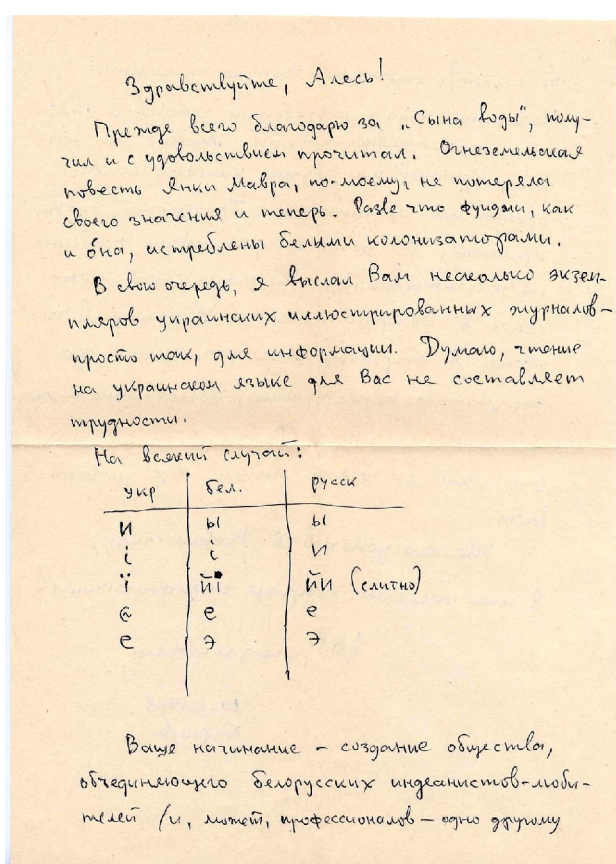 Здравствуйте, Алесь!
Прежде всего благодарю за „Сына воды", полу-
чил и с удовольствием прочитал. Огнеземельская
повесть Янки Мавра, по-моему, не потеряла
своего значения и теперь. Разве что фуиджи, как
и о́на, истреблены белыми колонизаторами.
В свою очередь, я выслал Вам несколько экзем-
пляров украинских иллюстрированных журналов –
просто так, для информации. Думаю, чтение
на украинском языке для Вас не составляет
трудности.
На всякий случай:
укр бел. русск
и ы ы
і і и
ї йі йи (слитно)
є е е
е э э
Ваше начинание – создание общества,
объединяющего белорусских индеанистов-люби-
телей /и, может, профессионалов – одно другому